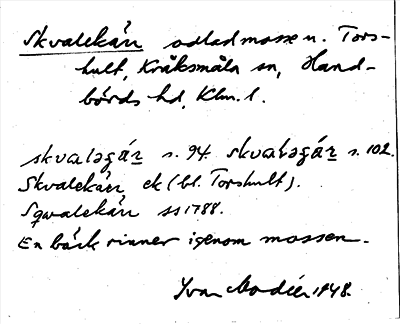 Skvalekärr odlad mosse n. Tors-
hult, Kråksmåla sn, Hand-
börds hd, Klm. l.
skvaləɡár s. 94. skvaləɡár s. 102.
Skvalekärr ek (bl. Torshult).
Sqvalekärr ss 1788.
En bäck rinner igenom mossen.
Ivar Modéer 1948.